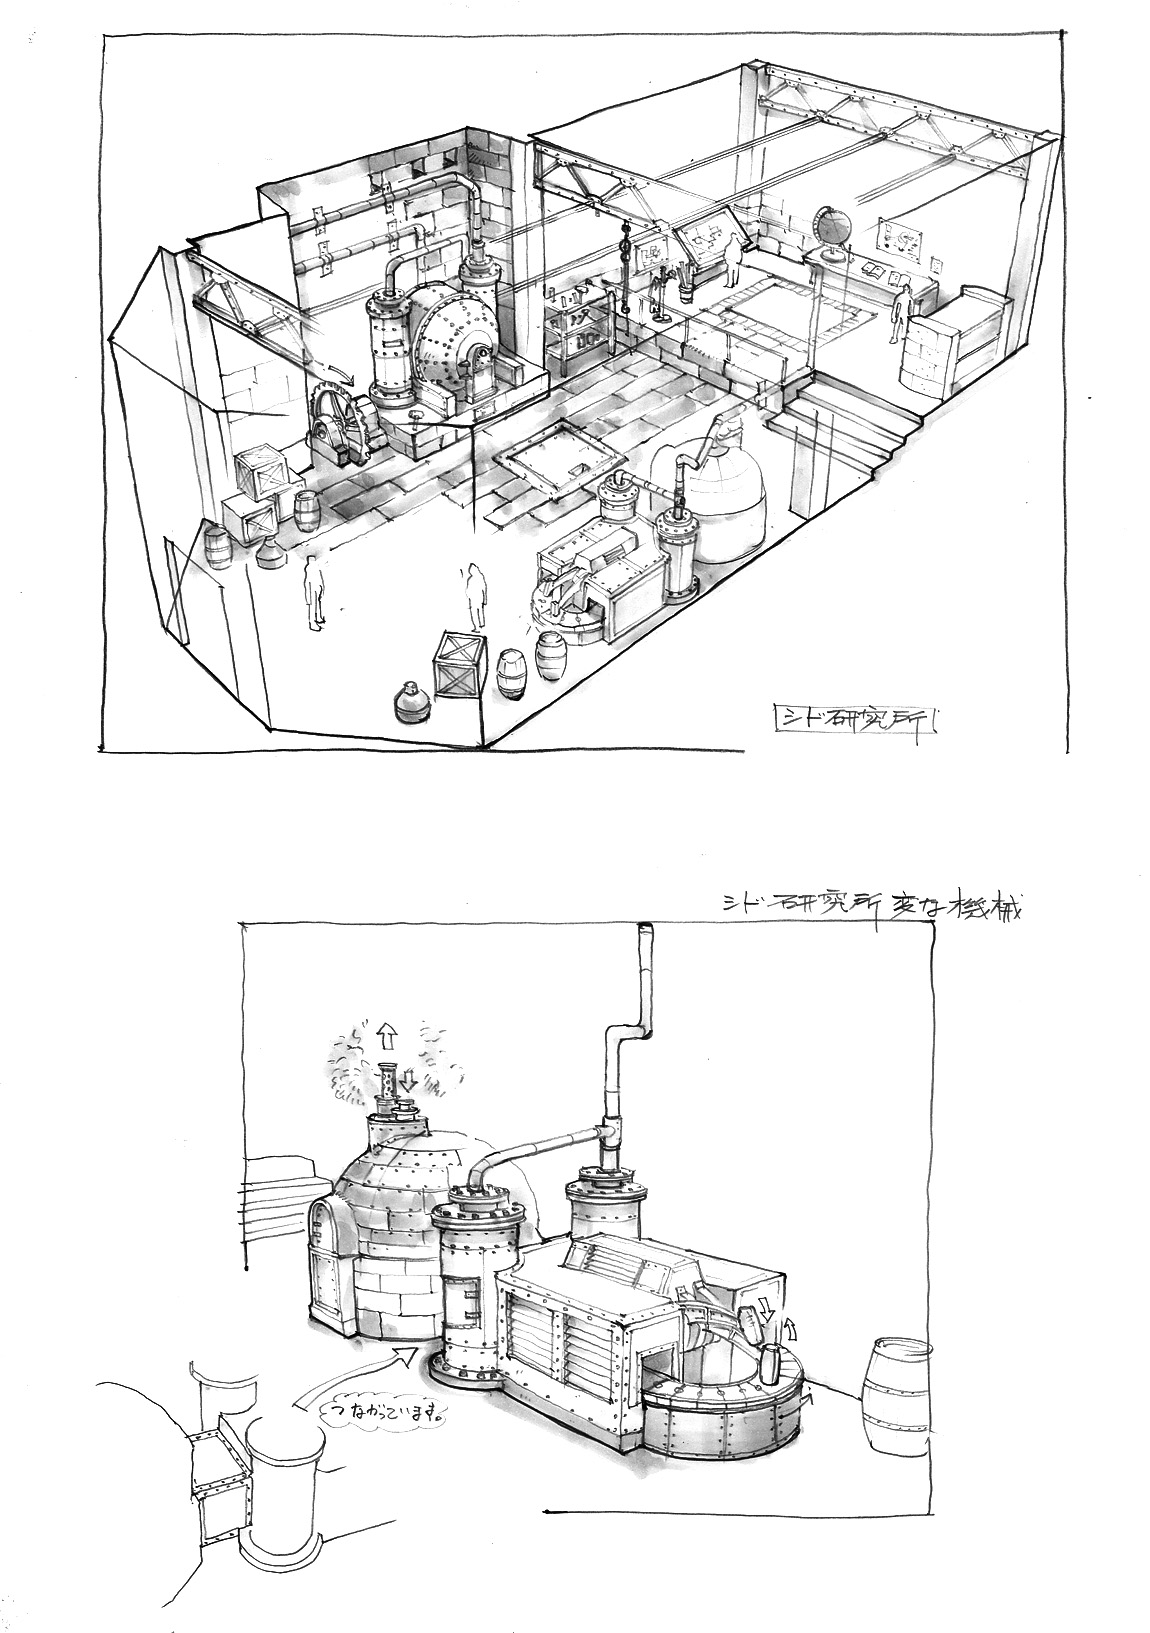 シド研究所
シド研究所 変な機械
つながっています。